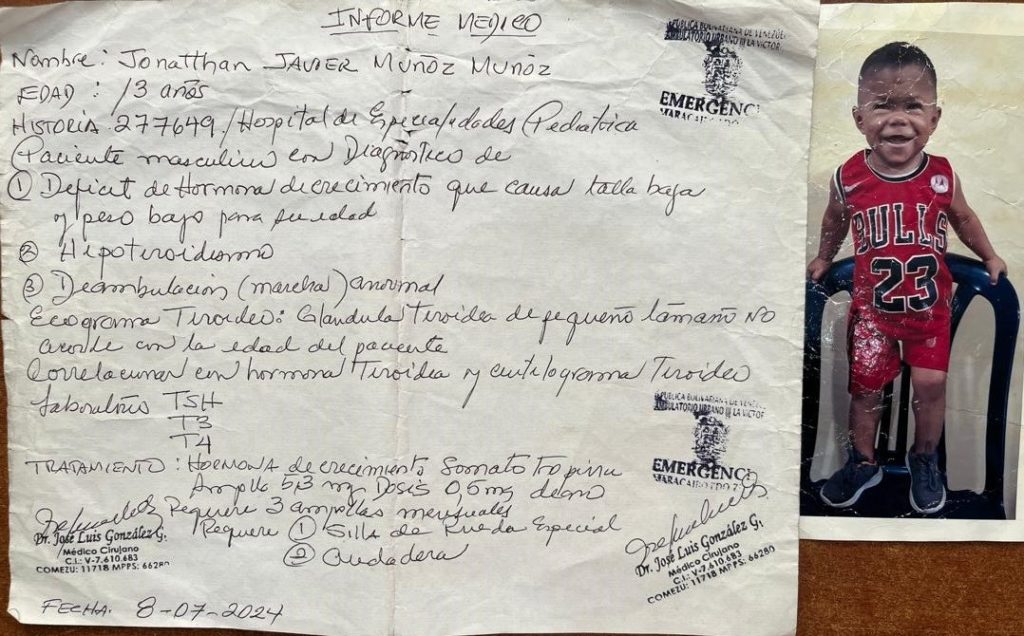 INFORME MEDICO
Nombre: Jonatthan JAVIER MUÑOZ MUÑOZ
EDAD: 13 años
HISTORIA 277649/Hospital de Especialidades Pediatrica
Paciente masculino con Diagnostico de
① Deficit de Hormona de crecimiento que causa talla baja
y peso bajo para su edad
② Hipotiroidismo
③ Deambulacion (marcha) anormal
Ecograma Tiroideo: Glandula Tiroidea de pequeño tamaño NO
acorde con la edad del paciente
Correlacionar con hormona Tiroidea y Tiroideo
Laboratorios TSH
T3
T4
TRATAMIENTO: HORMONA de crecimiento Somatotropina
Ampolla 5,3 mg Dosis 0,6mg
Requiere 3 ampollas mensuales
Requiere ① Silla de Rueda Especial
② Andadera
FECHA: 8-07-2024
PUBLICA BOLIVARIANA DE VENEZUE
AMBULATORIO URBANO III LA VICTOR
EMERGENCI
MARACAIBO
PUBLICA BOLIVARIANA DE VENEZ
AMBULATORIO URBANO III LA VICTOR
EMERGENCI
MARACAIBO EDO Z
Dr. José Luis González G.
Médico Cirujano
C.I.: V-7.610.683
COMEZU: 11718 MPPS: 66280
Dr. José Luis González G.
Médico Cirujano
C.I.: V-7.610.683
COMEZU: 11718 MPPS: 66280
BULLS
23